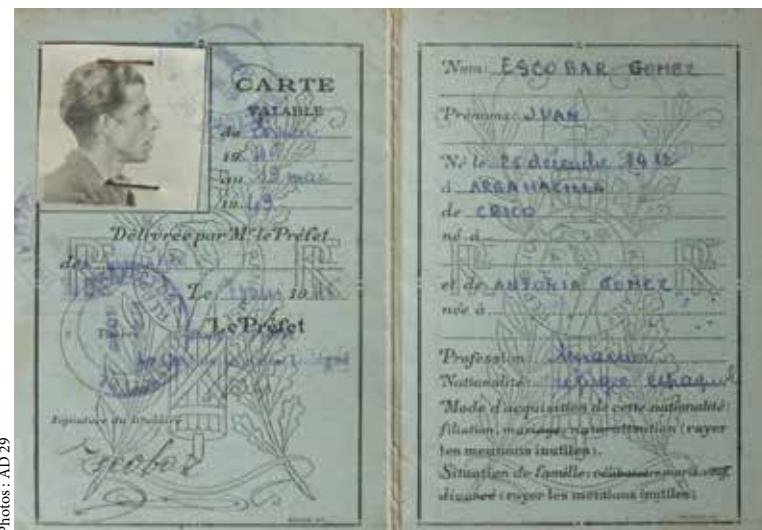 CARTE
VALABLE
du
19
au 19 mai
19 49
Délivrée par Mr le Préfet
des
Le juin 19
Le Préfet
Signature du titulaire
Escobar
Nom: ESCOBAR GOMEZ
Prénoms: JUAN
Né le 25 décembre 1912
à ARGAMACILLA
de CRICO
né à
et de ANTONIA GOMEZ
née à
Profession:
Nationalité: réfugié espagnol
Mode d'acquisition de cette nationalité:
filiation, mariage, naturalisation (rayer
les mentions inutiles).
Situation de famille: célibataire marié veuf
divorcé (rayer les mentions inutiles)
Photos : AD 29